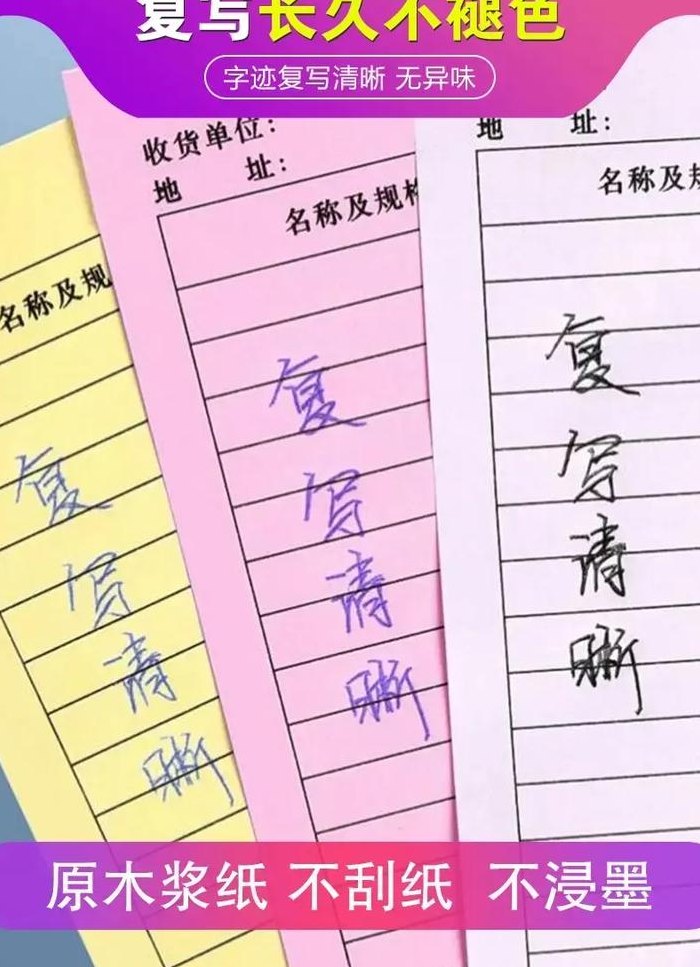 复写长久不褪色
字迹复写清晰 无异味
收货单位：
地 址：
名称及规格
地 址：
名称及规
名称及规
复写清晰
复写清晰
复写清晰
原木浆纸 不刮纸 不浸墨